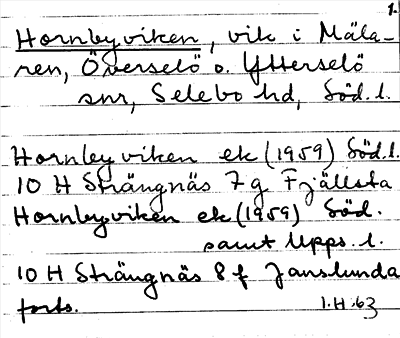 1.
Hornbyviken, vik i Mäla-
ren, Överselö o. Ytterselö
snr, Selebo hd, Söd.l.
Hornbyviken ek (1959) Söd.l.
10 H Strängnäs 7 g Fjällsta
Hornbyviken ek (1959) Söd.
samt Upps. l.
10 H Strängnäs 8 f Janslunda
forts. 1.H.63